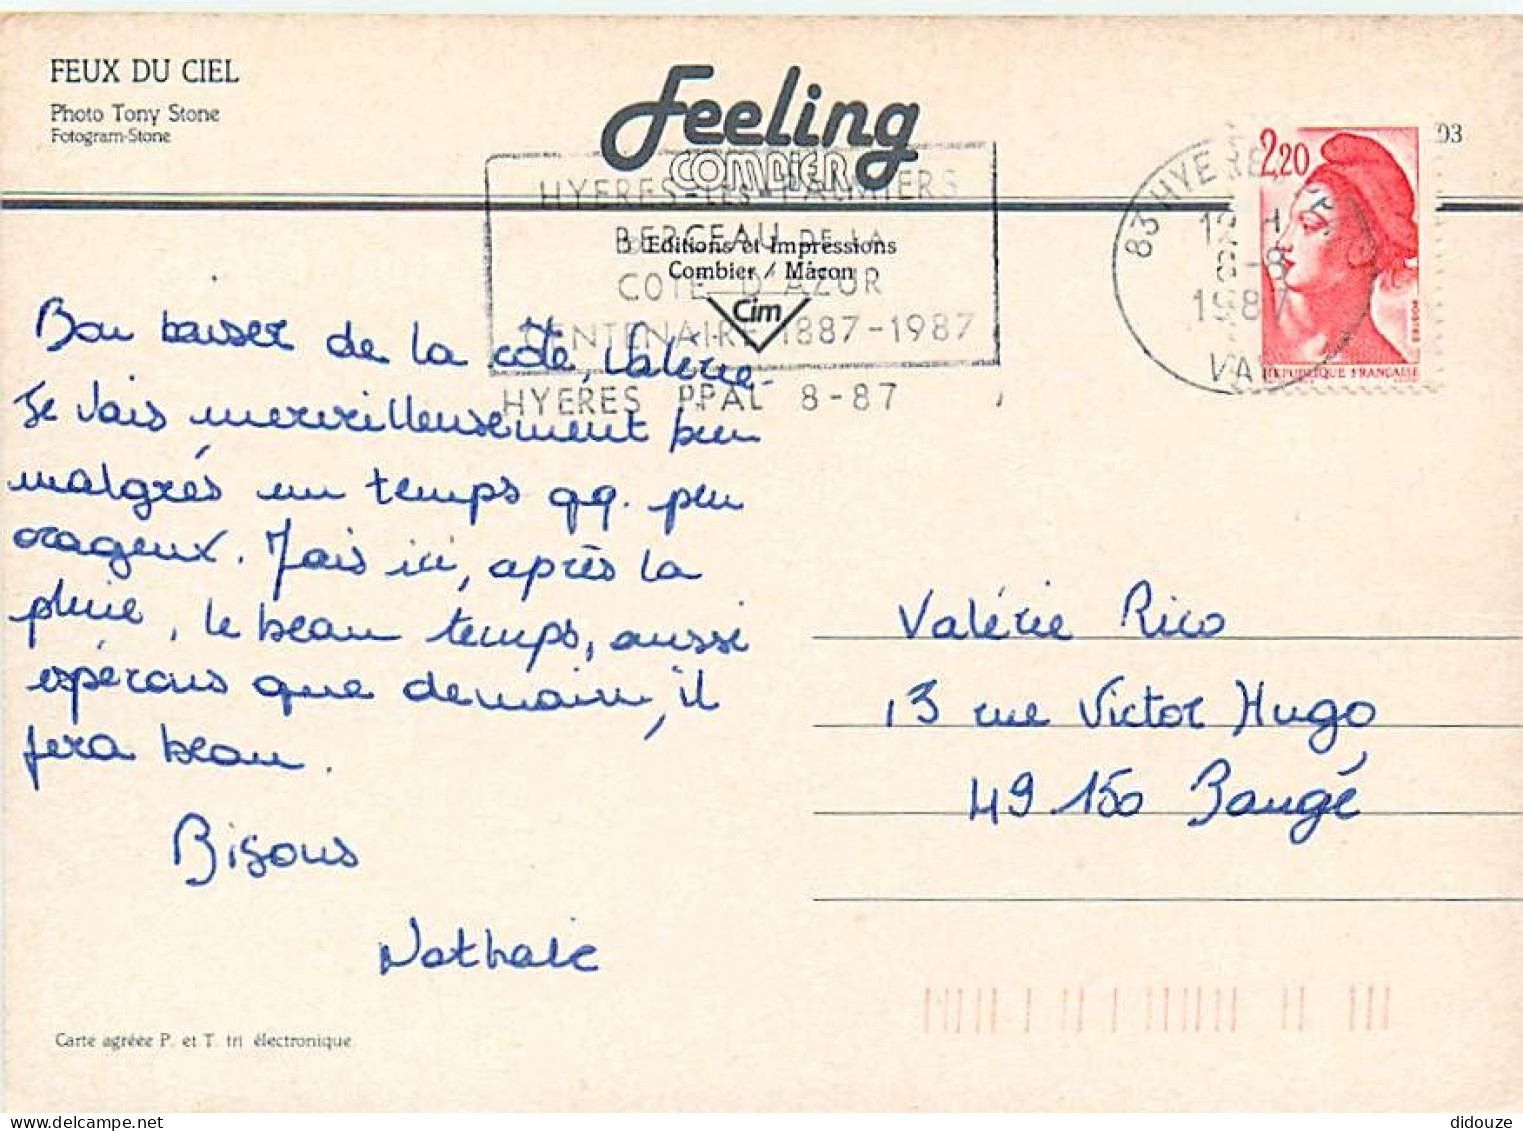 FEUX DU CIEL
Photo Tony Stone
Fotogram-Stone
Feeling
COMBIER
HYERES-LES-PALMIERS
BERCEAU DE LA
COTE D'AZUR
CENTENAIRE 1887-1987
HYERES PPAL 8-87
Editions et Impressions
Combier / Mâcon
Cim
83 HYERES PPAL
-8
1987
VAR
2,20
POSTES
REPUBLIQUE FRANÇAISE
03
Bon baiser de la côte, Valérie.
Je vais merveilleusement bien
malgrés un temps qq. peu
orageux. Mais ici, après la
pluie, le beau temps, aussi
espérons que demain, il
fera beau.
Bisous
Nathalie
Valérie Rico
13 rue Victor Hugo,
49 150 Baugé
Carte agréée P. et T. tri électronique
didouze